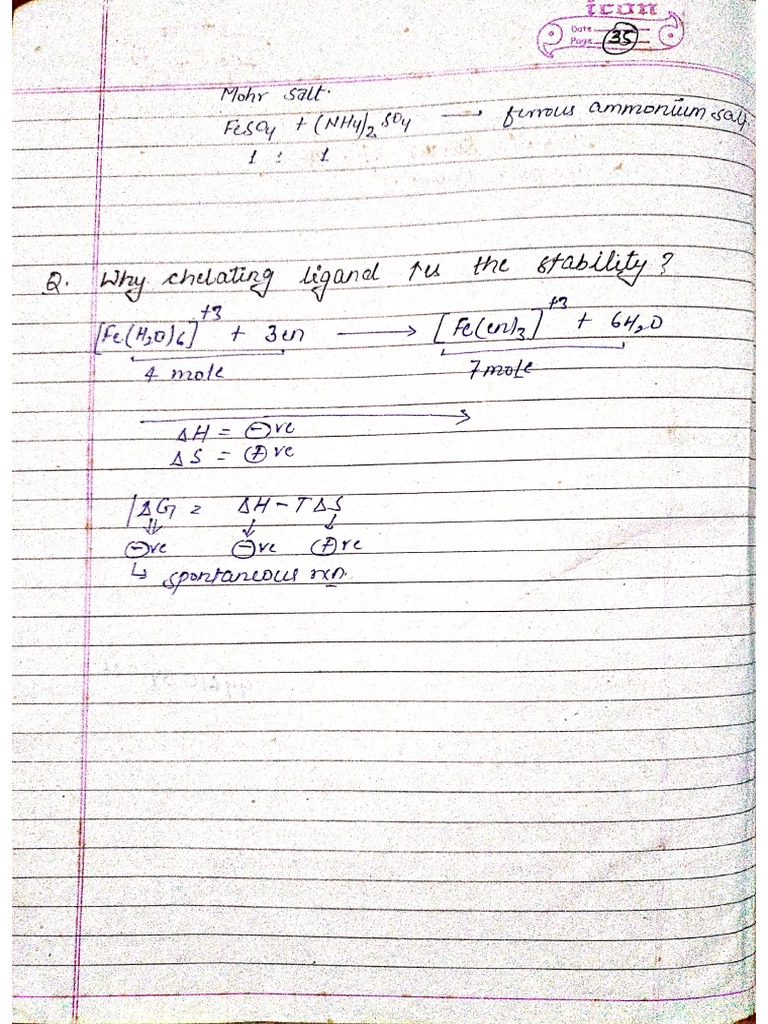 icon
Date
Page 35
Mohr Salt.
FeSO4 + (NH4)2 SO4 → ferrous ammonium salt
1 : 1
Q. Why chelating ligand ↑es the stability?
[Fe(H2O)6]+3 + 3en → [Fe(en)3]+3 + 6H2O
4 mole 7 mole
ΔH = ⊖ve
ΔS = ⊕ve
ΔG = ΔH - TΔS
⊖ve ⊖ve ⊕ve
↳ spontaneous rxn.